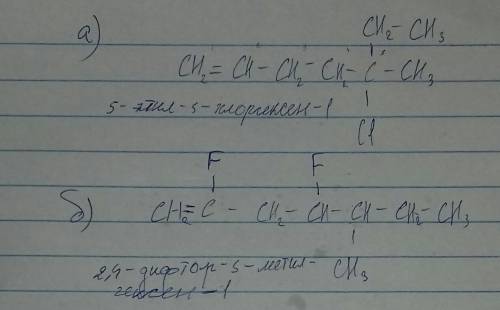 а)
CH₂ - CH₃
CH₂ = CH - CH₂ - CH₂ - C - CH₃
Cl
5-этил-5-хлоргексен-1
F F
б) CH₂ = C - CH₂ - CH - CH - CH₂ - CH₃
CH₃
2,4-дифтор-5-метил-
гепсен-1